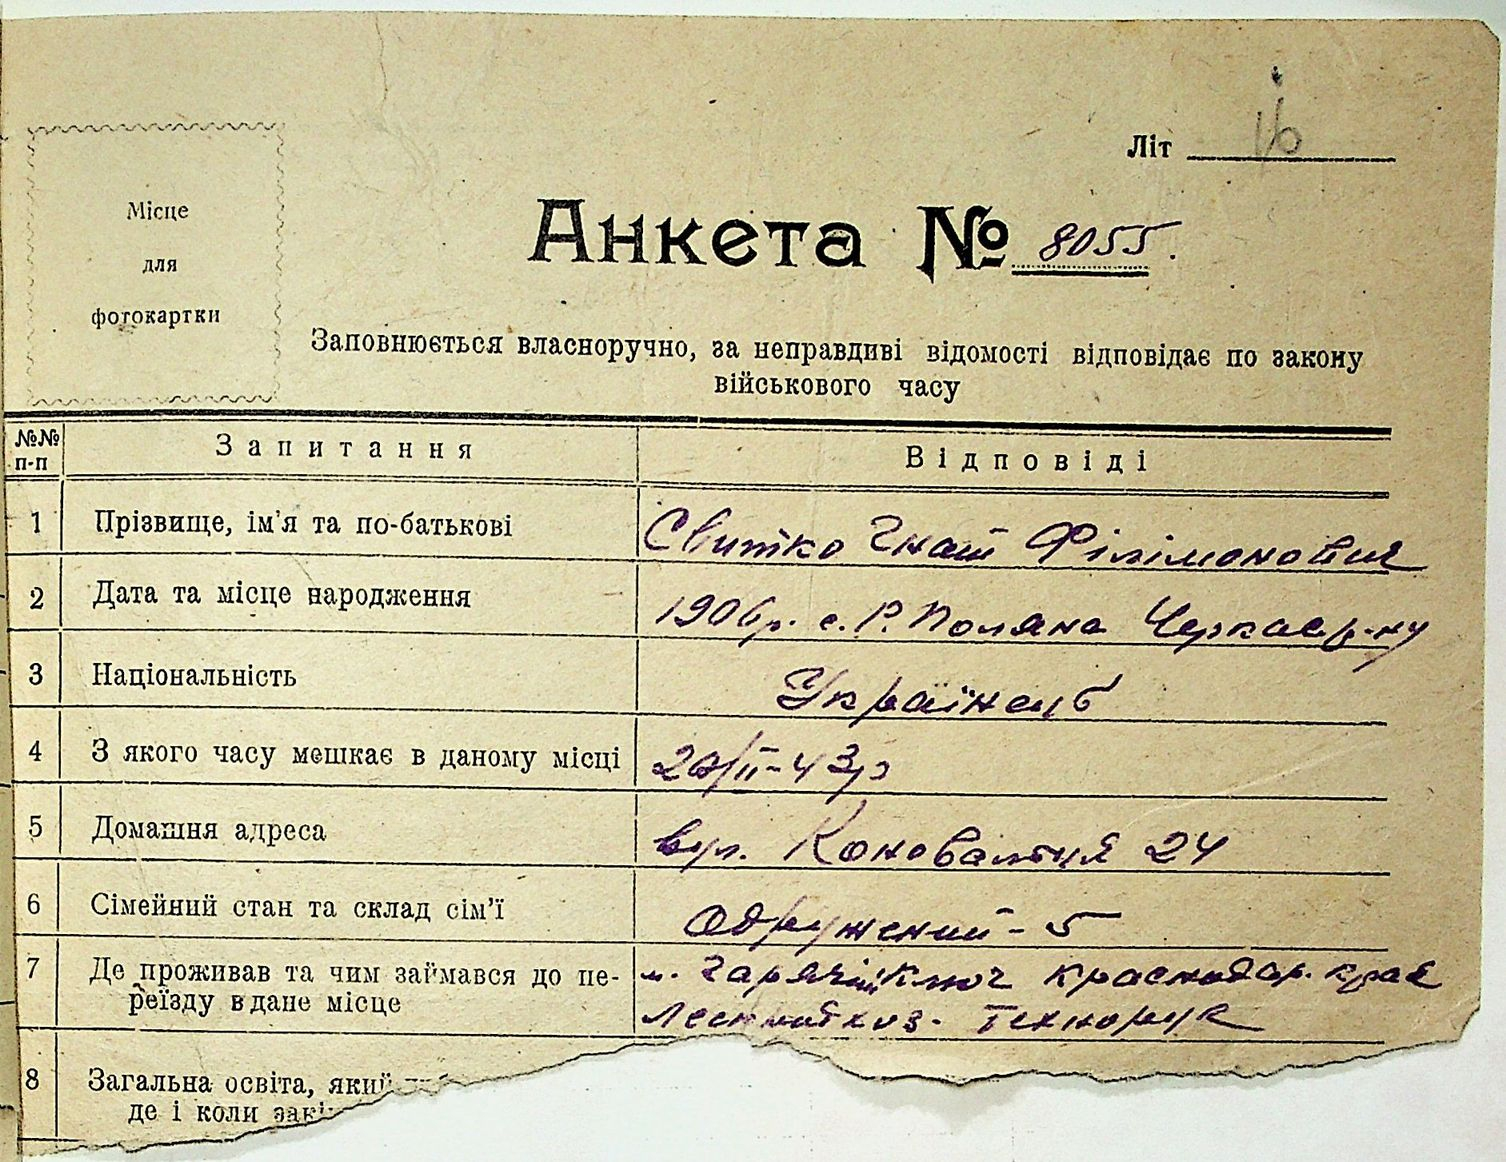 Літ 16
Місце
для
фотокартки
Анкета № 8055.
Заповнюється власноручно, за неправдиві відомості відповідає по закону
військового часу
№№ п-п
Запитання
Відповіді
1 Прізвище, ім'я та по-батькові Свитко Гнат Філімонович
2 Дата та місце народження 1906р. с. Р. Поляна Черкас р-ну
3 Національність Українець
4 З якого часу мешкає в даному місці 20/II-43р
5 Домашня адреса вул. Коновальця 24
6 Сімейний стан та склад сім'ї Одружений - 5
7 Де проживав та чим займався до пе- м. Гарячий Ключ Краснодар. края
реїзду в дане місце Технорук
8 Загальна освіта, який
де і коли